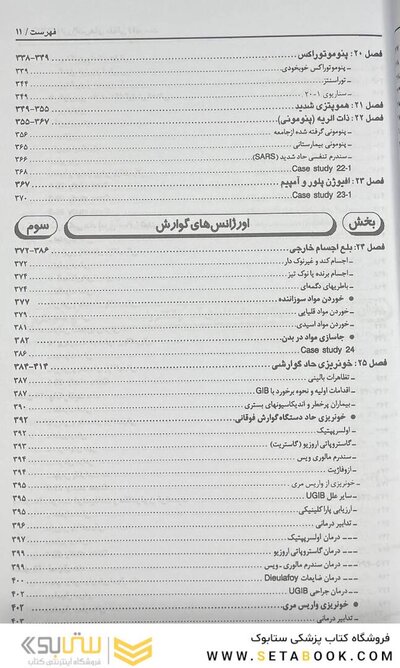 فهرست / ۱۱
فصل ۲۰: پنوموتوراکس ۳۴۹-۳۳۸
ـ پنوموتوراکس خودبخودی ۳۳۹
ـ توراسنتز ۳۴۴
ـ سناریوی ۱-۲۰ ۳۴۹
فصل ۲۱: هموپتزی شدید ۳۵۵-۳۴۹
فصل ۲۲: ذات الریه (پنومونی) ۳۶۷-۳۵۵
ـ پنومونی گرفته شده ازجامعه ۳۵۶
ـ پنومونی بیمارستانی ۳۶۵
ـ سندرم تنفسی حاد شدید (SARS) ۳۶۶
Case study 22-1 ۳۶۸
فصل ۲۳: افیوژن پلور و آمپیم ۳۶۷
Case study 23-1 ۳۷۰
بخش اورژانس‌های گوارش سوم
فصل ۲۴: بلع اجسام خارجی ۳۸۶-۳۷۲
ـ اجسام کند و غیرنوک دار ۳۷۲
ـ اجسام برنده یا نوک تیز ۳۷۴
ـ باطریهای دگمه‌ای ۳۷۴
• خوردن مواد سوزاننده ۳۷۷
ـ خوردن مواد قلیایی ۳۷۹
ـ خوردن مواد اسیدی ۳۸۱
• جاسازی مواد در بدن ۳۸۲
Case study 24 ۳۸۶
فصل ۲۵: خونریزی حاد گوارشی ۴۱۴-۳۸۴
ـ تظاهرات بالینی ۳۸۷
ـ اقدامات اولیه و نحوه برخورد با GIB ۳۸۷
ـ بیماران پرخطر و اندیکاسیونهای بستری ۳۹۰
• خونریزی حاد دستگاه گوارش فوقانی ۳۹۲
ـ اولسرپپتیک ۳۹۲
ـ گاستروپاتی اروزیو (گاستریت) ۳۹۳
ـ سندرم مالوری ویس ۳۹۴
ـ ازوفاژیت ۳۹۴
ـ خونریزی از واریس مری ۳۹۵
ـ سایر علل UGIB ۳۹۵
ـ ارزیابی پاراکلینیکی ۳۹۵
ـ تدابیر درمانی ۳۹۶
ــ درمان اولسرپپتیک ۳۹۷
ــ درمان گاستروپاتی اروزیو ۳۹۹
ــ درمان سندرم مالوری ـ ویس ۳۹۹
ــ درمان ضایعات Dieulafoy ۴۰۰
ــ درمان جراحی UGIB ۴۰۲
• خونریزی واریس مری ۴۰۳
ـ تدابیر درمانی
فروشگاه کتاب پزشکی ستابوک
WWW.SETABOOK.COM
ستابوک
فروشگاه اینترنتی کتاب